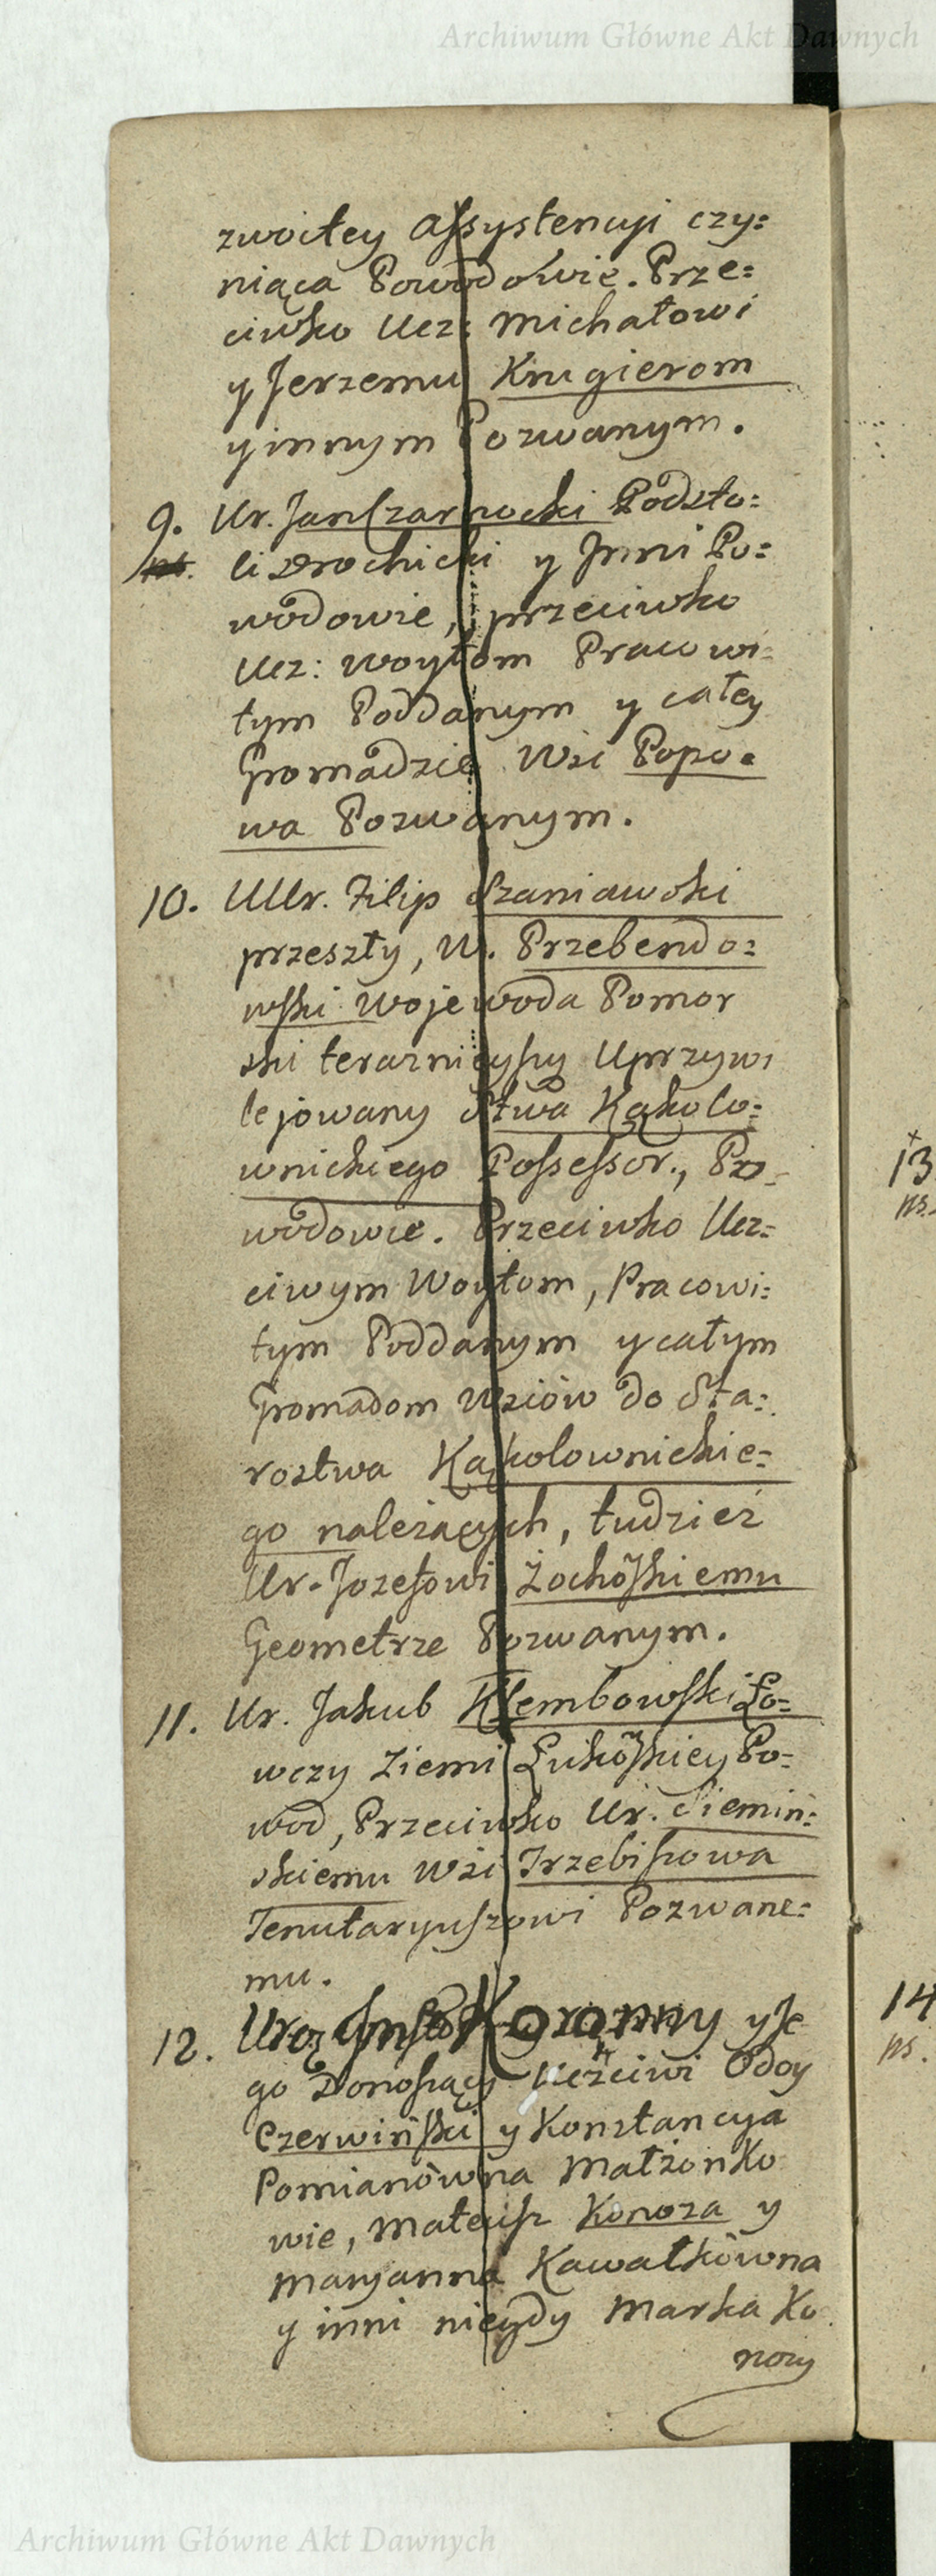 Archiwum Główne Akt Dawnych
zwoitey Assystencyi czy:
niąca Powodowie. Prze:
ciwko Ucz: Michałowi
y Jerzemu Krugierom
y innym Pozwanym.
9. Ur. Jan Czarnocki Podsto:
li Drochicki y Jnni Po:
wodowie, przeciwko
Ucz: Woytom Pracowi:
tym Poddanym y całey
Gromadzie Wsi Popo:
wa Pozwanym.
10. UUr. Filip Szaniawski
przeszły, W. Przebendo:
wski Wojewoda Pomor
ski teraznieyszy Uprzywi
lejowany Stwa Kąkolo:
wnickiego Possessor., Po:
wodowie. Przeciwko Ucz:
ciwym Woytom, Pracowi:
tym Poddanym y całym
Gromadom Wsiów do Sta:
rostwa Kąkolownickie:
go należących, tudzież
Ur. Jozefowi Żochoskiemu
Geometrze Pozwanym.
11. Ur. Jakub Klembowski Ło:
wczy Ziemi Łukoskiey Po:
wod, Przeciwko Ur. Siemiń:
skiemu Wsi Trzebiszowa
Tenutaryuszowi Pozwane:
mu.
12. Uroz Jnsty Koronny y Je
go Donoszący Uczciwi Odoy
Czerwiński y Konstancya
Pomianówna Małżonko
wie, Mateusz Konoza y
Maryanna Kawałkówna
y inni niegdy Marka Ko
nozy
13
ps.
14
ps.
Archiwum Główne Akt Dawnych